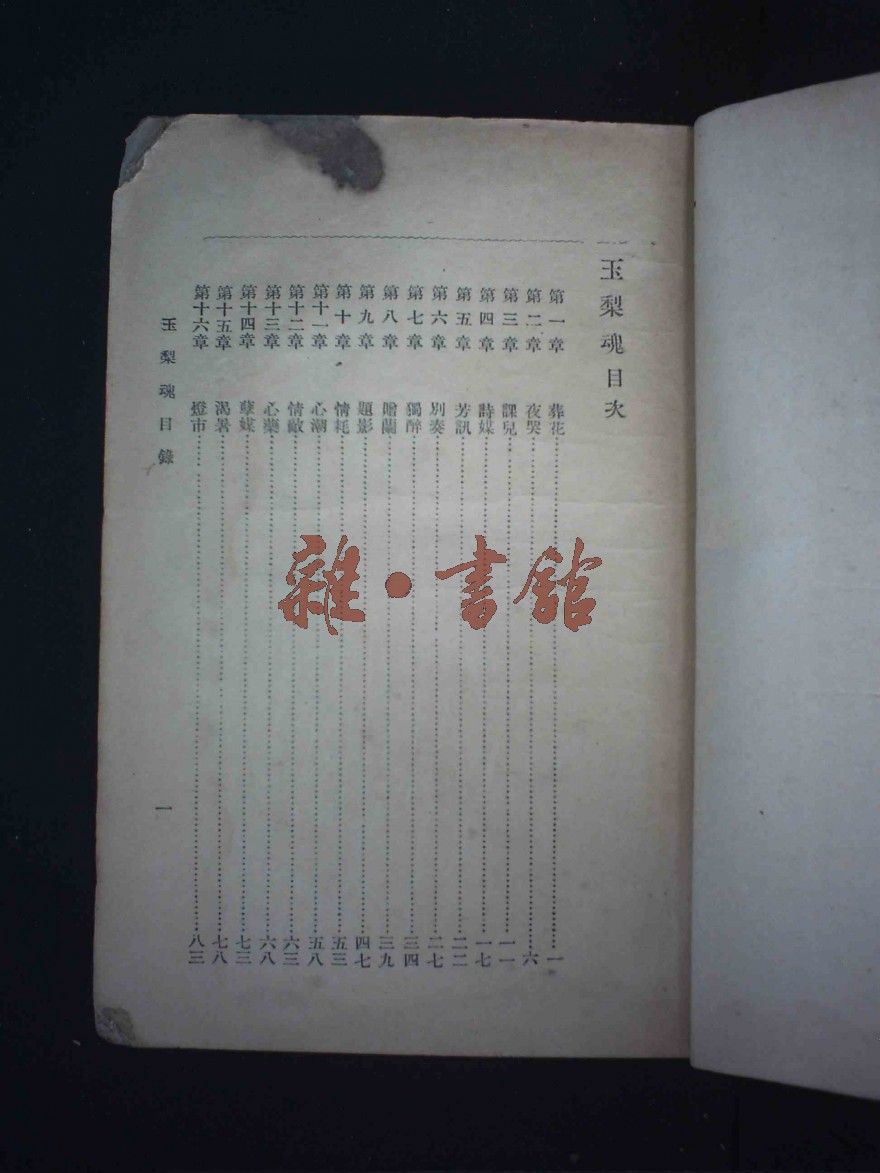 玉梨魂目次
第一章 葬花 一
第二章 夜哭 六
第三章 課兒 一一
第四章 詩媒 一七
第五章 芳訊 二二
第六章 別奏 二七
第七章 獨醉 三四
第八章 贈蘭 三九
第九章 題影 四七
第十章 情耗 五三
第十一章 心潮 五八
第十二章 情敵 六三
第十三章 心藥 六八
第十四章 孽媒 七三
第十五章 渴暑 七八
第十六章 燈市 八三
玉梨魂目錄 一
雜·書館